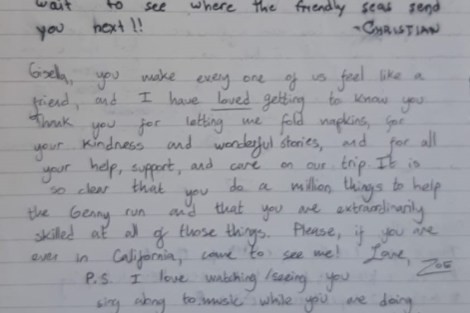 wait to see where the friendly seas send
you next!! -CHRISTIAN
Gisela, you make every one of us feel like a
friend, and I have loved getting to know you
Thank you for letting me fold napkins, for
your kindness and wonderful stories, and for all
your help, support, and care on our trip. It is
so clear that you do a million things to help
the Genny run and that you are extraordinarily
skilled at all of those things. Please, if you are
ever in California, come to see me! Love,
Zoe
P.S. I love watching/seeing you
sing along to music while you are doing